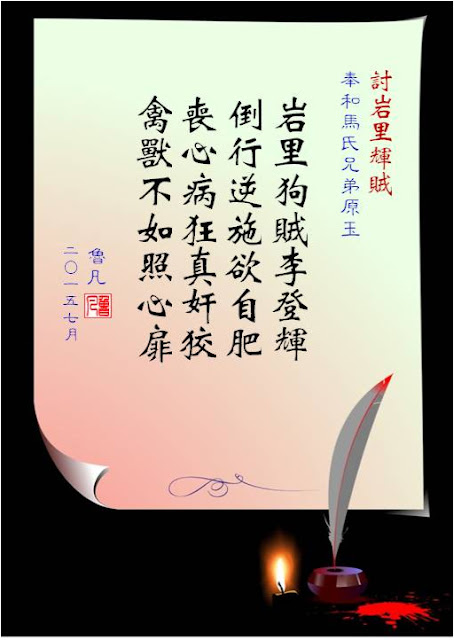 討岩里輝賊
奉和馬氏兄弟原玉
岩里狗賊李登輝
倒行逆施欲自肥
喪心病狂真奸狡
禽獸不如照心扉
魯凡
二〇一五七月